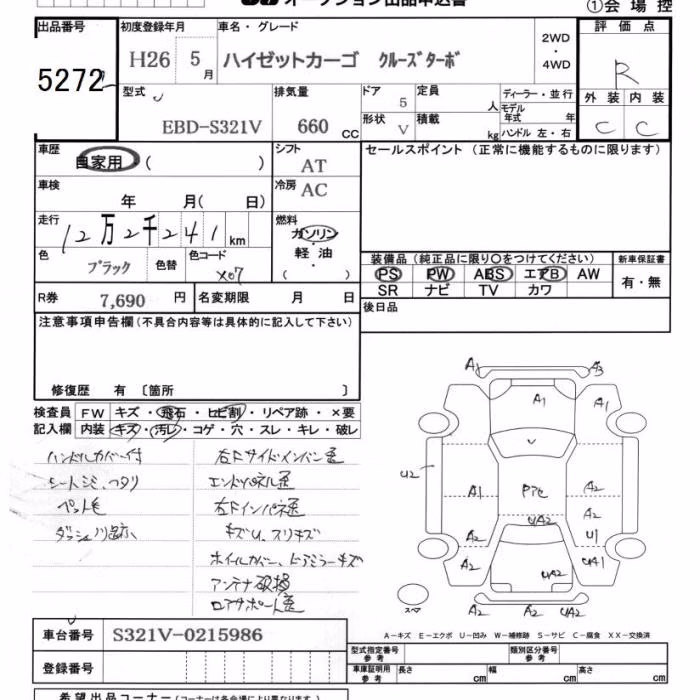 オークション出品申込書
①会場控
出品番号
5272
初度登録年月
H26 5月
車名・グレード
ハイゼットカーゴ クルーズターボ
2WD
・
4WD
評価点
R
外装 内装
C C
型式
EBD-S321V
排気量
660 CC
ドア
5
定員
人
ディーラー・並行
モデル
年式 年
形状
V
積載
kg
ハンドル 左・右
車歴
自家用 ( )
シフト
AT
セールスポイント (正常に機能するものに限ります)
車検
年 月( 日)
冷房
AC
走行
12万2千241km
燃料
ガソリン
・
軽油
・
( )
色
ブラック
色替
色コード
X07
装備品 (純正品に限り○をつけてください)
新車保証書
PS PW ABS エアB AW
有・無
SR ナビ TV カワ
R券
7,690 円
名変期限 月 日
後日品
注意事項申告欄 (不具合内容等は具体的に記入して下さい)
修復歴 有 〔箇所 〕
検査員
記入欄
FW キズ・飛石・ヒビ割・リペア跡・×要
内装 キズ・汚レ・コゲ・穴・スレ・キレ・破レ
ハンドルカバー付
右Fサイドメンバー歪
エンドパネル歪
ペット毛
右Fインパネ歪
キズU、スリキズ
アンテナ破損
A1
A3
A1
A1
U2
A1
Pアセ
A2
A2
UA2
U1
A2
A2
UA2
UA1
A2
A2
UA2
スペア
A-キズ E-エクボ U-凹み W-補修跡 S-サビ C-腐食 XX-交換済
車台番号
S321V-0215986
登録番号
型式指定番号
参考
類別区分番号
参考
車庫証明用
参考
長さ cm
幅 cm
高さ cm
希望出品コーナー (コーナーは各会場により異なります)